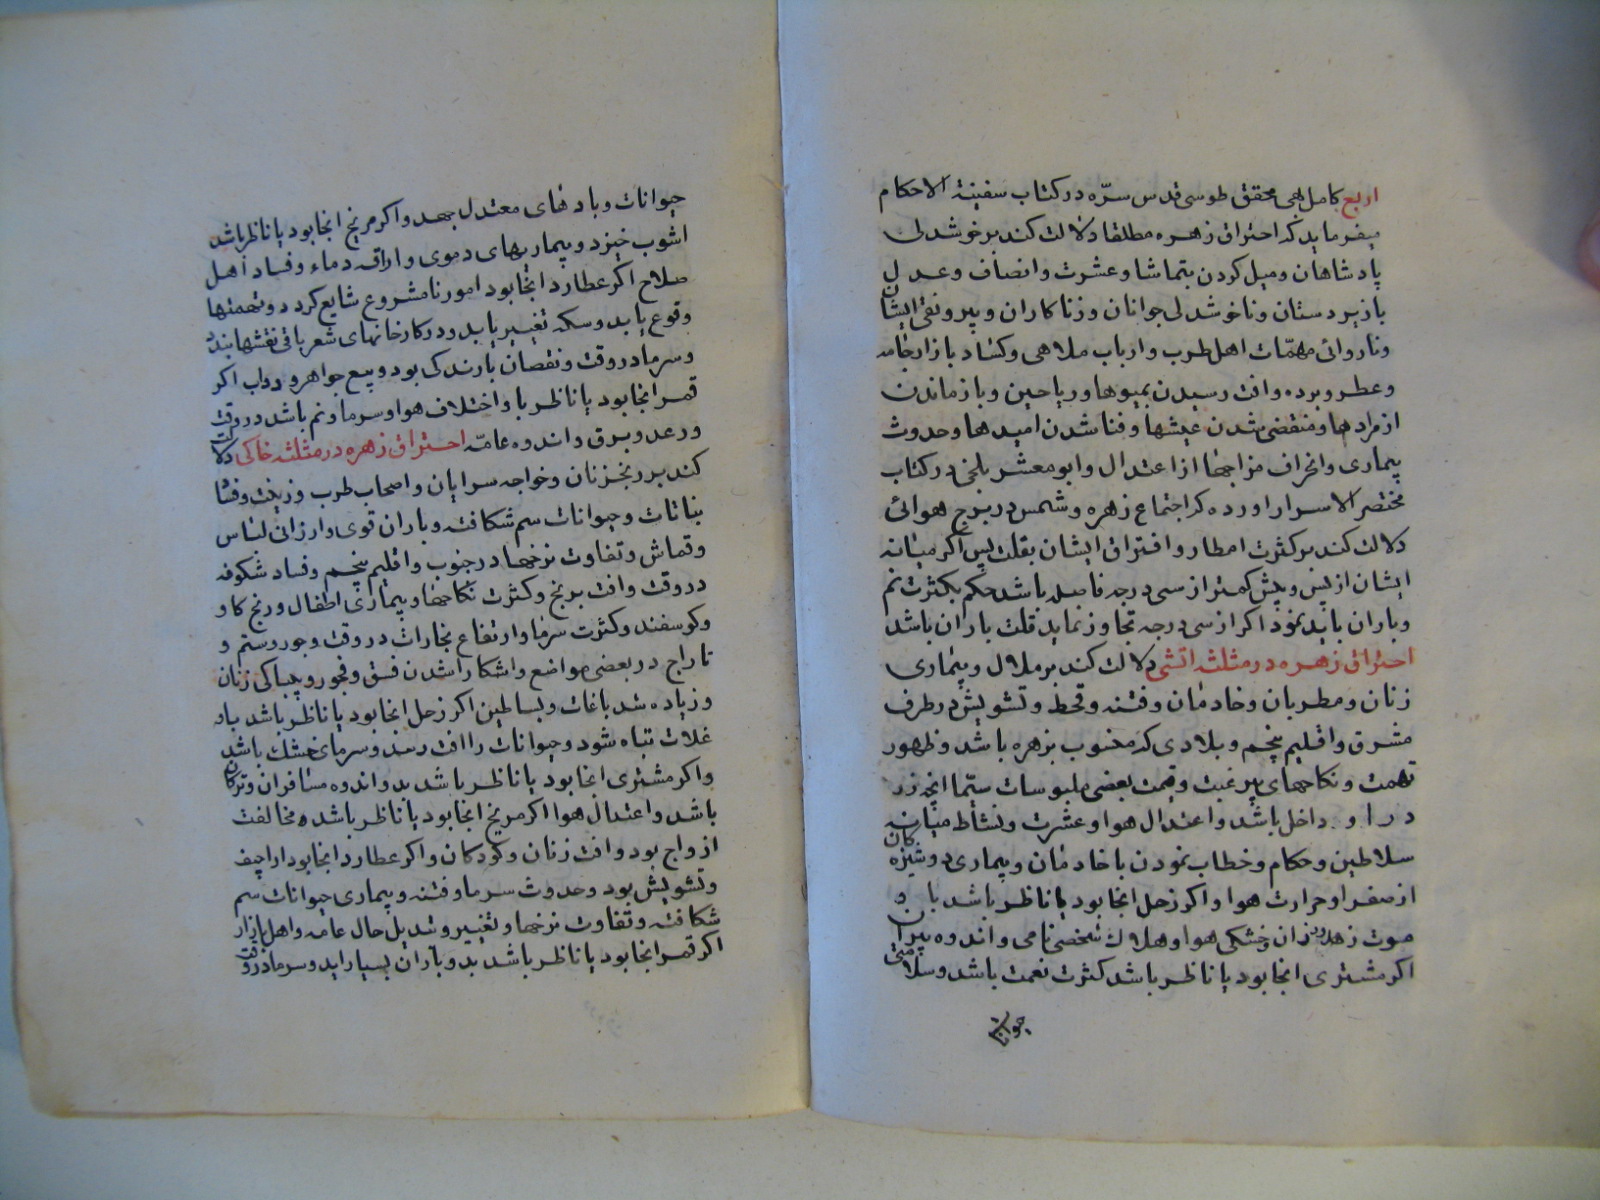 اربع کامل الهی محقق طوسی قدس سرّه در کتاب سفینة الاحکام
میفرماید که احتراق زهره مطلقا دلالت کند بر خوشدلی
پادشاهان و میل کردن بتماشا و عشرت و انصاف و عدل
با زیردستان و ناخوشدلی جوانان و زناکاران و بیرونقی ایشان
و ناروائی مهمّات اهل طرب و ارباب ملاهی و کساد بازار جامه
و عطر و برده و افت رسیدن بمیوها و ریاحین و بازماندن
از مرادها و منقضی شدن عیشها و فنا شدن امیدها و حدوث
بیماری و انحراف مزاجها از اعتدال و ابو معشر بلخی در کتاب
مختصر الاسرار اورده که اجتماع زهره و شمس در برج هوائی
دلالت کند بر کثرت امطار و افتراق ایشان بقلت پس اکر میانه
ایشان از پس و پیش کمتر از سی درجه فاصله باشد حکم بکثرت نم
و باران باید نمود اکر از سی درجه تجاوز نماید قلت باران باشد
احتراق زهره در مثلثه اتشی دلالت کند بر ملال و بیماری
زنان و مطربان و خادمان و فتنه و قحط و تشویش در طرف
مشرق و اقلیم پنجم و بلادی که منسوب بزهره باشد و ظهور
تهمت و نکاحهای بیرغبت و قیمت بعضی ملبوسات سیّما انچه زر
در او داخل باشد و اعتدال هوا و عشرت و نشاط میانه
سلاطین و حکام و خطاب نمودن با خادمان و بیماری دوشیزه کان
از صفرا و حرارت هوا و اکر زحل انجا بود یا ناظر باشد با و
موت زهاد و زنان و خشکی هوا و هلاک شخصی نامی و اندوه پیران
اکر مشتری انجا بود یا ناظر باشد کثرت نعمت باشد و سلامتی
حیوانات
حیوانات و بادهای معتدل جهد و اکر مریخ انجا بود یا ناظر باشد
اشوب خیزد و بیماریهای دموی و اراقه دماء و فساد اهل
صلاح اکر عطارد انجا بود امور نامشروع شایع کردد و تهمتها
وقوع یابد و سکه تغییر یابد و در کارخانهای شعربافی نقشها بندند
و سرما در وقت و نقصان بارندکی بود و بیع جواهر و دواب اکر
قمر انجا بود یا ناظر با و اختلاف هوا و سرما و نم باشد در وقت
و رعد و برق و اندوه عامّه احتراق زهره در مثلثه خاکی دلالت
کند بر رنج زنان و خواجه سرایان و اصحاب طرب و زینت و فساد
نباتات و حیوانات سم شکافته و باران قوی و ارزانی لباس
و قماش و تفاوت نرخها در جنوب و اقلیم پنجم و فساد شکوفه
در وقت و افت برنج و کثرت نکاحها و بیماری اطفال و رنج کاو
و کوسفند و کثرت سرما و ارتفاع بخارات در وقت و جور و ستم و
تاراج در بعضی مواضع و اشکارا شدن فسق و فجور و بیباکی زنان
و زیاده شد باغات و بساطین اکر زحل انجا بود یا ناظر باشد باو
غلات تباه شود و حیوانات را افت رسد و سرمای خشک باشد
و اکر مشتری انجا بود یا ناظر باشد بد و اندوه مسافران و ترکان
باشد و اعتدال هوا اکر مریخ انجا بود یا ناظر باشد مخالفت
ازواج بود و افت زنان و کودکان و اکر عطارد انجا بود اراجیف
و تشویش بود و حدوث سرما و فتنه و بیماری حیوانات سم
شکافته و تفاوت نرخها و تغییر و تبدیل حال عامه و اهل بازار
اکر قمر انجا بود یا ناظر باشد بد و باران بسیار اید و سرما در وقت